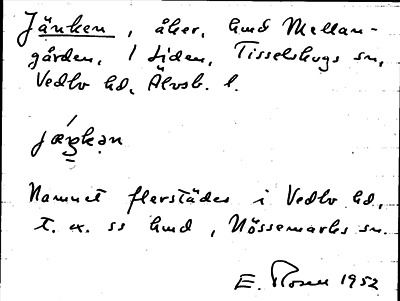 Jänken, åker, hmd Mellan-
gården, 1 Liden, Tisselskogs sn,
Vedbo hd, Älvsb. l.
jäŋkən
Namnet flerstädes i Vedbo hd,
t. ex. ss hmd, Nössemarks sn.
E. Rosen 1952